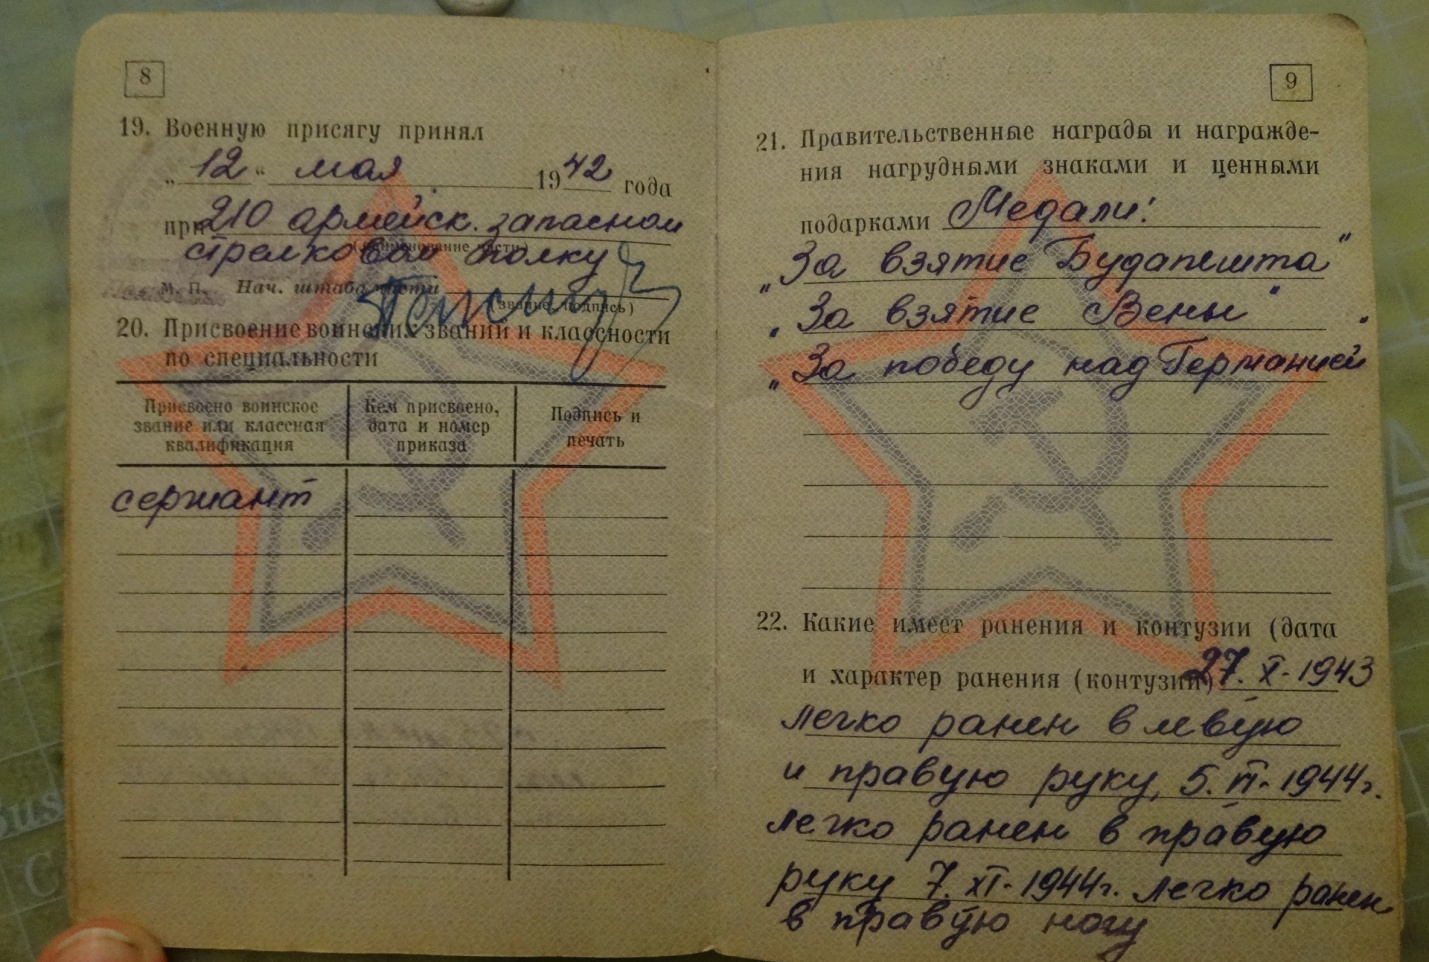 8
19. Военную присягу принял
„12“ мая 1942 года
при 210 армейск. запасном
(наименование части)
стрелковом полку
М. П. Нач. штаба части
(звание, подпись)
20. Присвоение воинских званий и классности
по специальности
Присвоено воинское
звание или классная
квалификация
Кем присвоено,
дата и номер
приказа
Подпись и
печать
сержант
9
21. Правительственные награды и награжде-
ния нагрудными знаками и ценными
подарками Медали:
„За взятие Будапешта“
„За взятие Вены“
„За победу над Германией“
22. Какие имеет ранения и контузии (дата
и характер ранения (контузии) 27. X - 1943
легко ранен в левую
и правую руку, 5. VI - 1944г.
легко ранен в правую
руку 7. XI - 1944г. легко ранен
в правую ногу